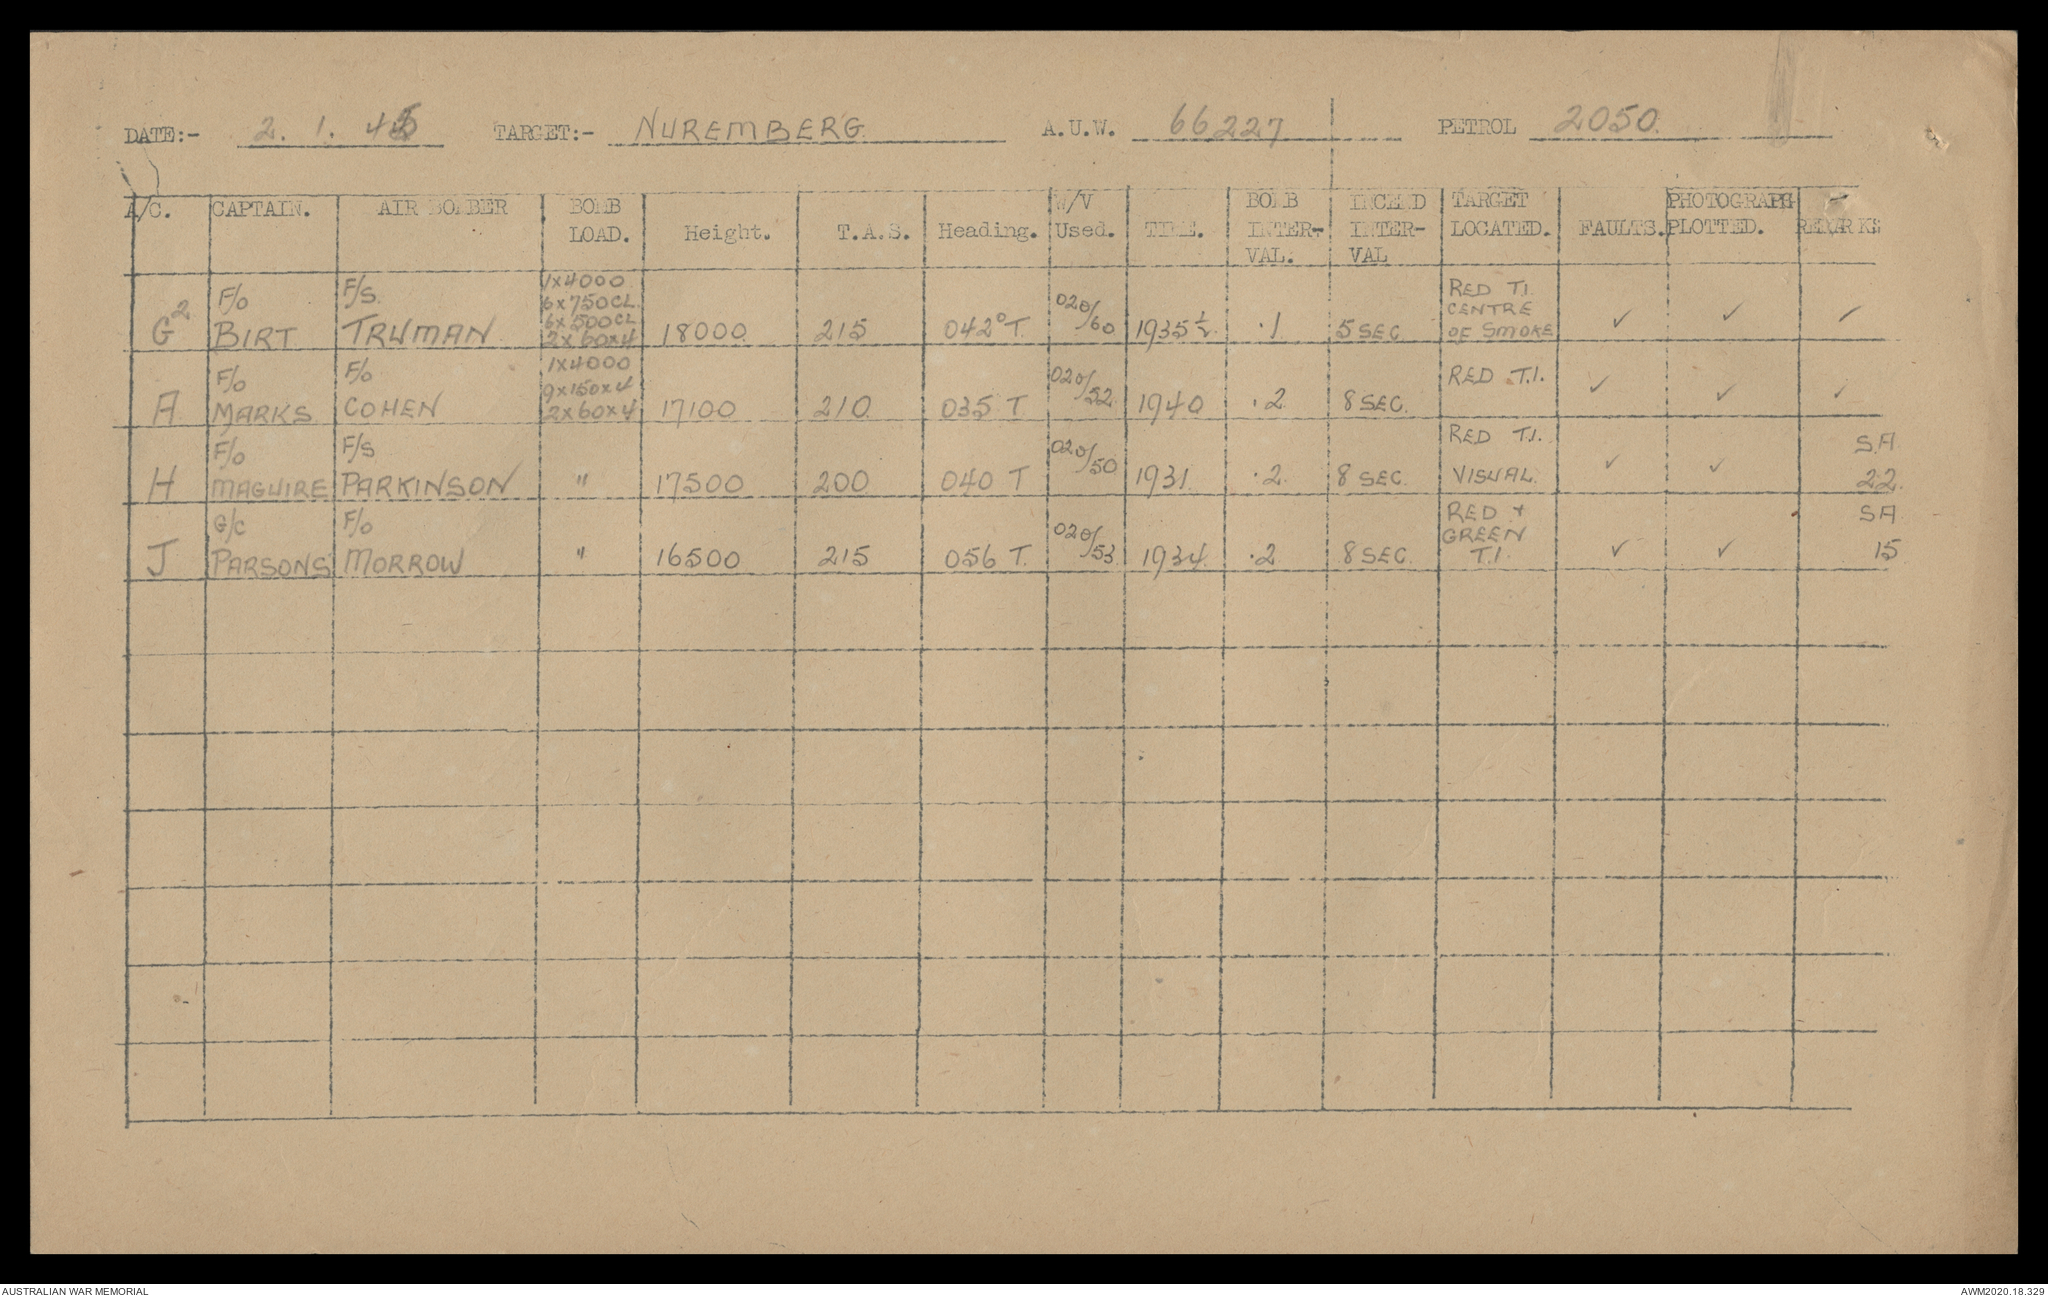 DATE:- 2. 1. 45 TARGET:- NUREMBERG. A.U.W. 66227 PETROL 2050.
A/C. CAPTAIN. AIR BOMBER BOMB LOAD. Height. T.A.S. Heading. W/V Used. TIME. BOMB INTER-VAL. INCEND INTER-VAL TARGET LOCATED. FAULTS. PHOTOGRAPH PLOTTED. REMARKS
G² F/O BIRT F/S. TRUMAN 1x4000 6x750CL 6x500CL 2x60x4 18000 215 042° T. 020/60 1935½ .1 5 SEC RED T.I. CENTRE OF SMOKE ✓ ✓ ✓
A F/O MARKS F/O COHEN 1x4000 9x150x4 2x60x4 17100 210 035 T 020/52 1940 .2 8 SEC. RED T.I. ✓ ✓ ✓
H F/O MAGUIRE F/S PARKINSON " 17500 200 040 T 020/50 1931 .2. 8 SEC. RED T.I. VISUAL. ✓ ✓ SA 22.
J G/C PARSONS F/O MORROW " 16500 215 056 T. 020/53 1934 .2 8 SEC. RED + GREEN T.I. ✓ ✓ SA 15
AUSTRALIAN WAR MEMORIAL AWM2020.18.329